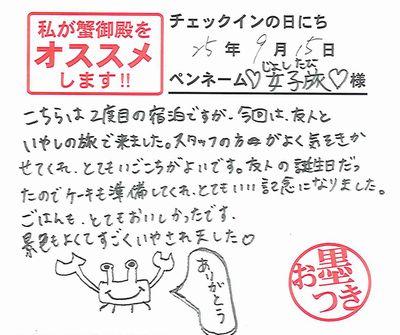 私が蟹御殿を
オススメ
します!!
チェックインの日にち
25年9月15日
じょしたび
ペンネーム♡女子旅♡様
こちらは2度目の宿泊ですが、今回は、友人と
いやしの旅で来ました。スタッフの方々がよく気をきか
せてくれ、とてもいごこちがよいです。友人の誕生日だっ
たのでケーキも準備してくれ、とてもいい記念になりました。
ごはんも、とてもおいしかったです。
景色もよくてすごくいやされました♡
ありがとう
お墨
つき